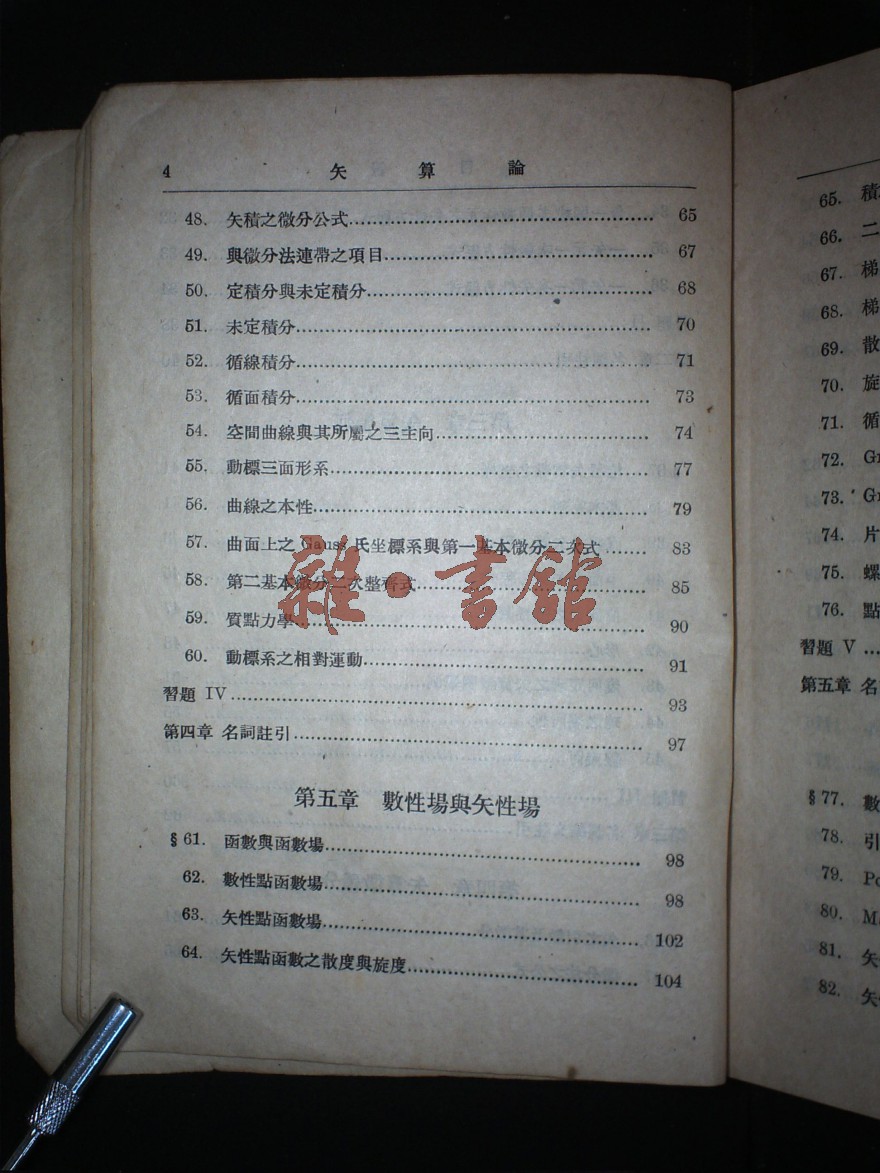 4 矢算論
48. 矢積之微分公式 65
49. 與微分法連帶之項目 67
50. 定積分與未定積分 68
51. 未定積分 70
52. 循線積分 71
53. 循面積分 73
54. 空間曲線與其所屬之三主向 74
55. 動標三面形系 77
56. 曲線之本性 79
57. 曲面上之 Gauss 氏坐標系與第一基本微分二次式 83
58. 第二基本微分二次整齊式 85
59. 質點力學 90
60. 動標系之相對運動 91
習題 IV 93
第四章 名詞註引 97
第五章 數性場與矢性場
§61. 函數與函數場 98
62. 數性點函數場 98
63. 矢性點函數場 102
64. 矢性點函數之散度與旋度 104
雜·書館
65. 積
66. 二
67. 梯
68. 梯
69. 散
70. 旋
71. 循
72. G
73. G
74. 片
75. 螺
76. 點
習題 V
第五章 名
§77. 數
78. 引
79. Po
80. M
81. 矢
82. 矢